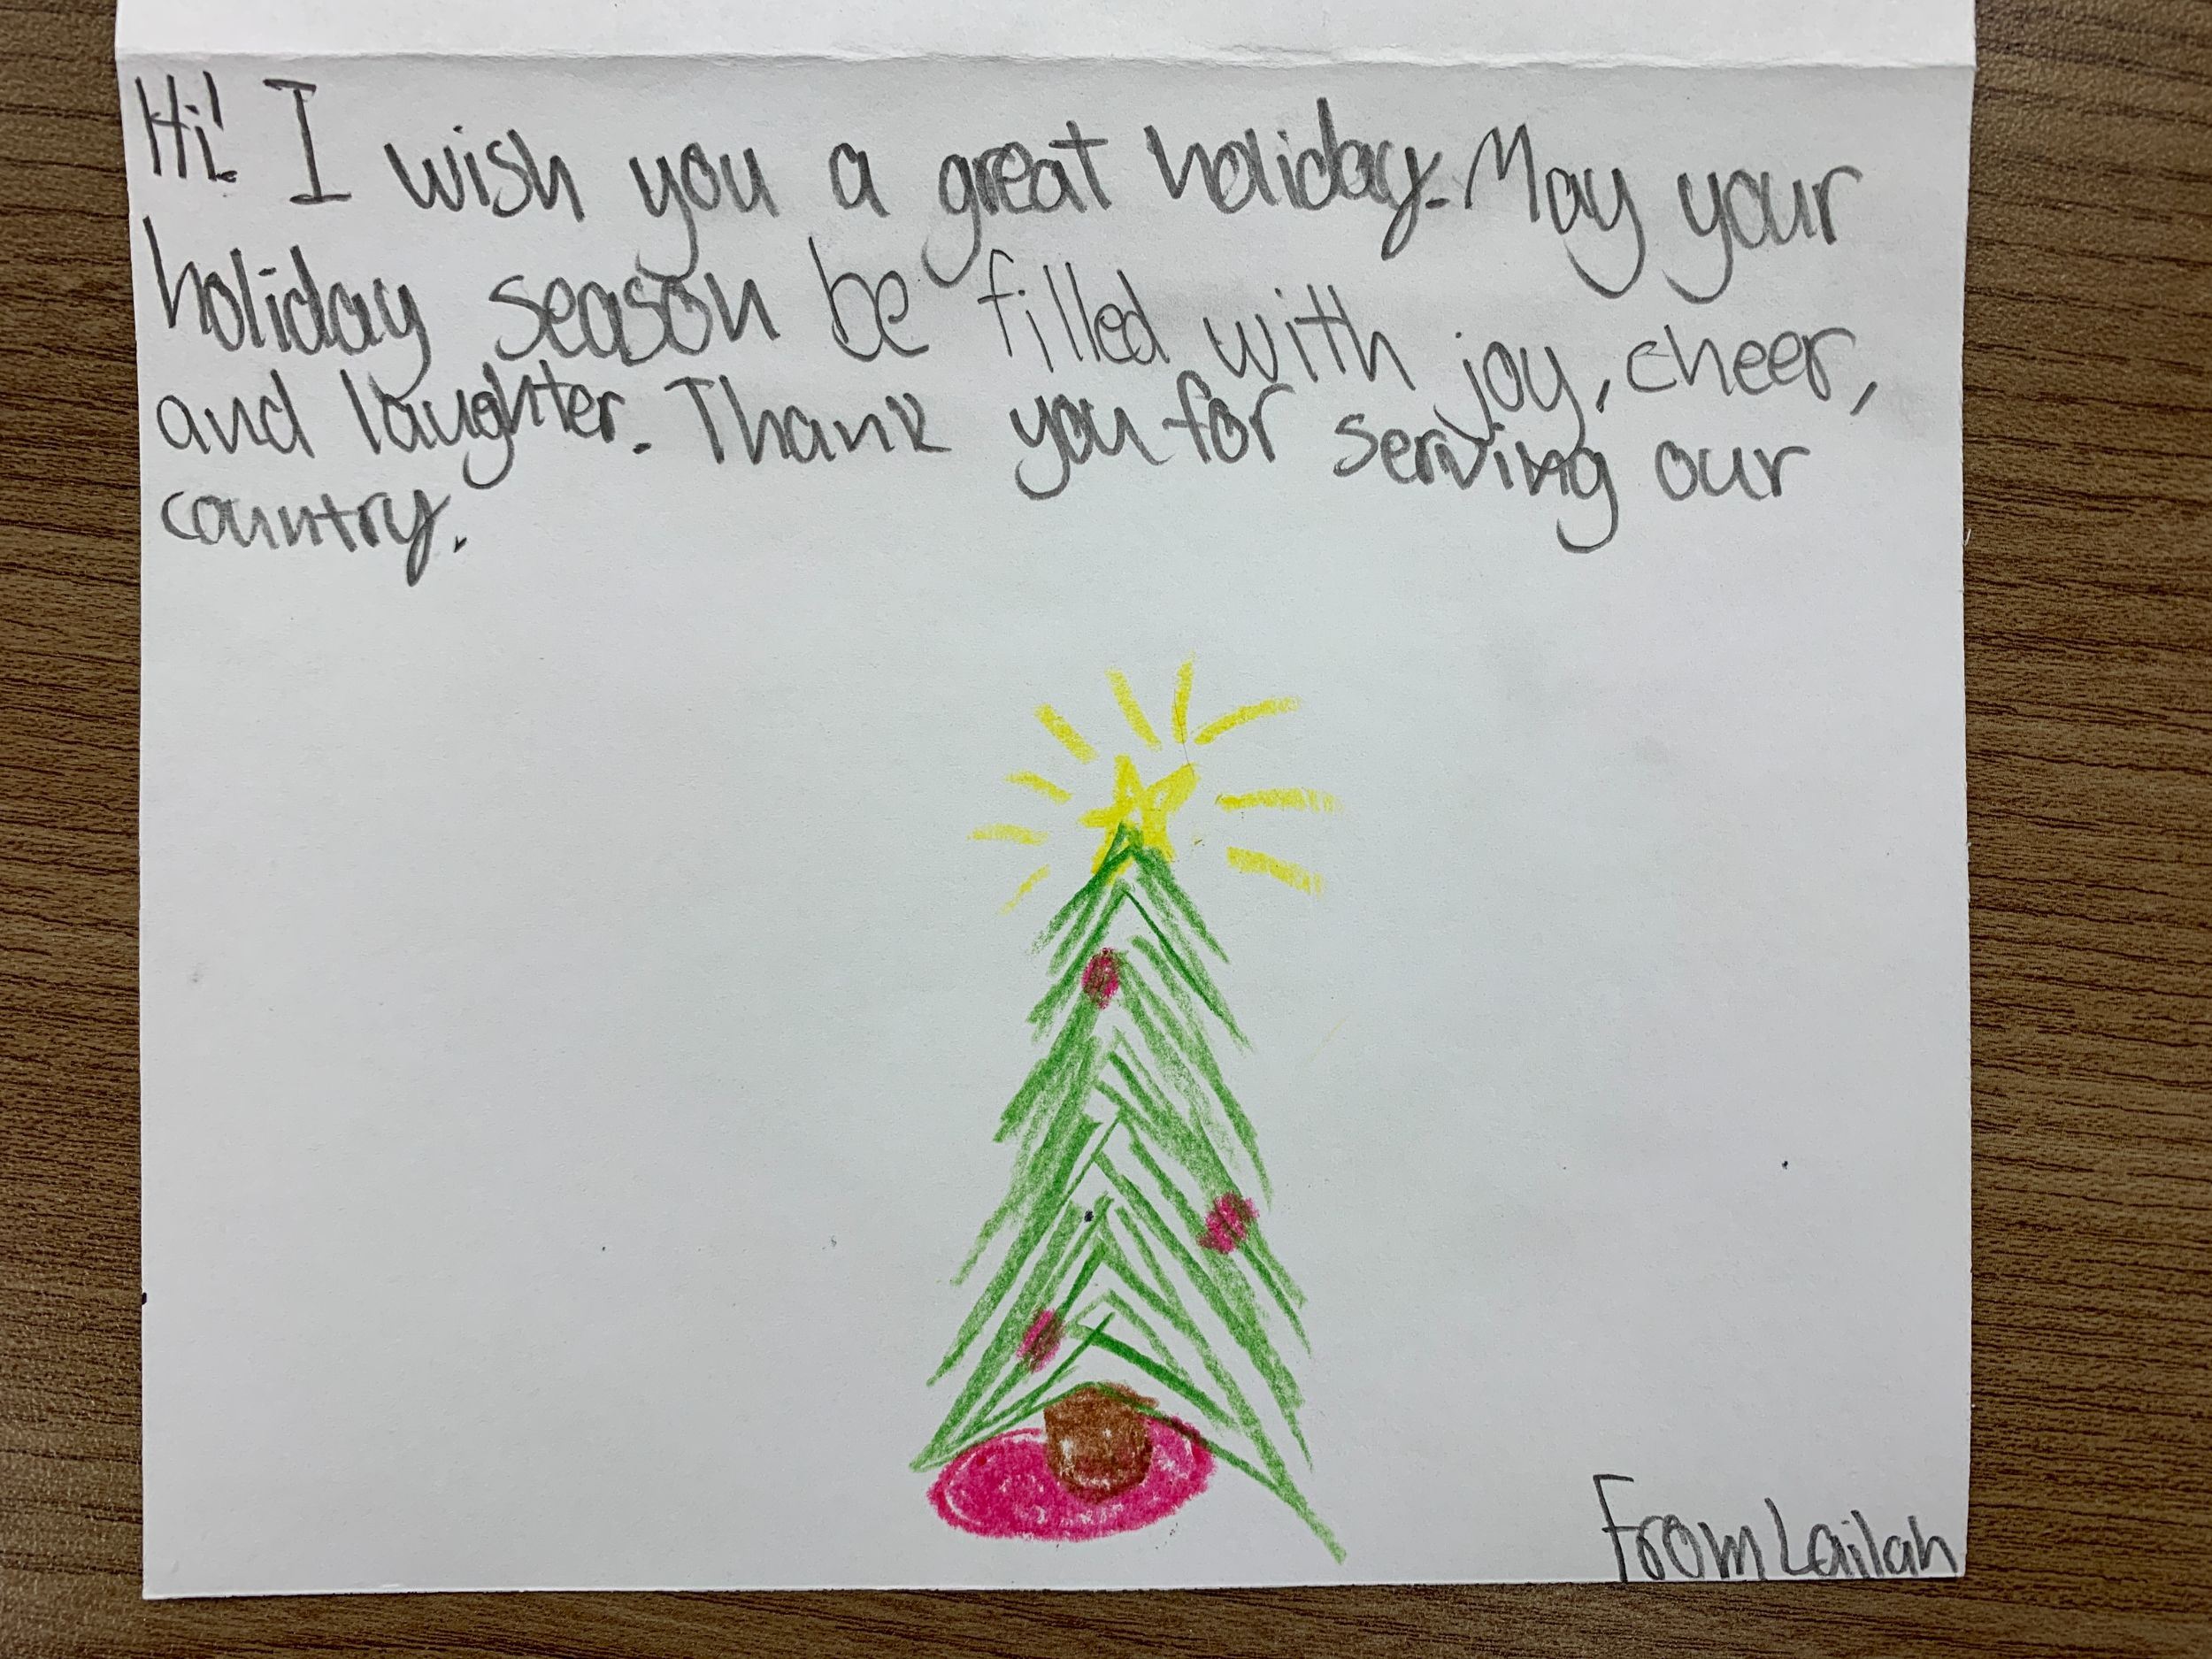 Hi! I wish you a great holiday. May your
holiday season be filled with joy, cheer,
and laughter. Thank you for serving our
country.
From Lailah